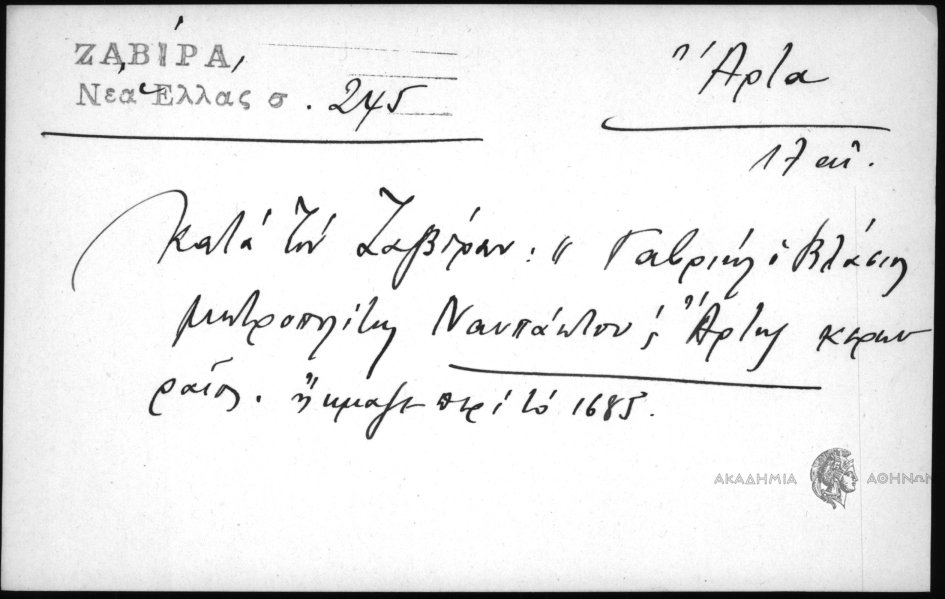 ΖΑΒΙΡΑ,
Νέα Ἑλλάς σ. 245
Ἄρτα
17 αἰ.
Κατά τόν Ζαβίραν: "Γαβριήλ ὁ Βλάσιος
μητροπολίτης Ναυπάκτου & Ἄρτης κερκυ
ραῖος. ἤκμαζε περί τό 1685.
ΑΚΑΔΗΜΙΑ ΑΘΗΝΩΝ